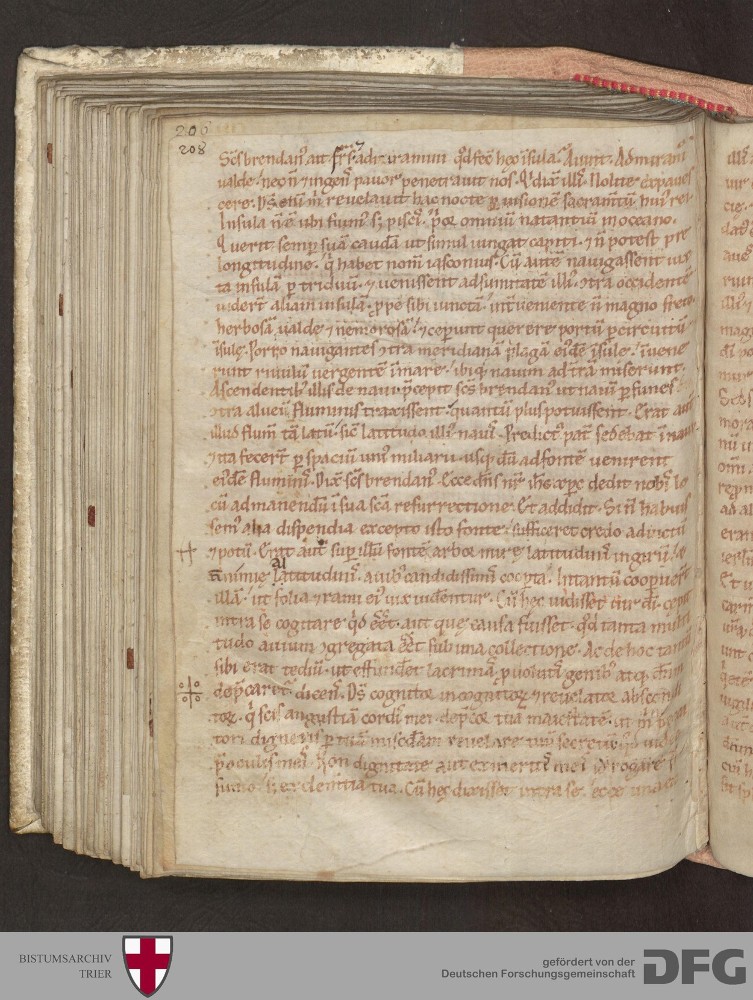 206
208
Scs brendan' ait frs admiramini qd fec hec isula. Aiunt. Admiram
valde. necn & ingens pavor penetravit nos. Qi dix ill. Nolite expaves
cere. Ds eni m revelavit hac nocte visione sacramtu hui rei.
Insula n e ubi fuim' s; pisci. por omniu natantiu in oceano.
Querit semp sua cauda ut simul iungat capiti. & n potest pre
longitudine. q habet nom iasconius. Cu aute navigassent iux
ta insula p triduu. & venissent ad sumitate illi. ctra occidente
videret aliam insula. ppe sibi iuncta. intveniente n magno freto
herbosa valde & nemorosa. & ceperunt querere portu p circuitu
isule. Porro navigantes ctra meridiana plaga eide isule. invene
runt rivulu vergente i mare. ibiq navim ad tra miserunt.
Ascendentib' illis de navi. pcepit scs brendan' ut navi p funes
ctra alveu fluminis traxissent. quantu plus potuissent. Erat aut
illud flum ta latu. sic latitudo illi navis. Predict' pat sedebat i navi
& ita fecert p spaciu uni' miliarii. usq du ad fonte venirent
eide fluminis. Dix scs brendan'. Ecce dns nr ihc xpc dedit nobis lo
cu ad manendu i sua sca resurrectione. Et addidit. Si n habuis
sem' alia dispendia excepto isto fonte. sufficeret credo ad victu
& potu. Erat aut sup illu fonte arbor mire latitudinis in giru. se
n nimie al latitudinis. avib' candidissimis coopta. Intantu cooperuert
illa. ut folia & rami ei' vix videntur. Cu hec vidisset vir di. cepit
intra se cogitare qd eet. aut que causa fuisset. qd tanta multi
tudo aviu cgregata eet sub una collectione. Ac de hoc tantu
sibi erat tediu. ut effundet lacrimas. pvolutis genib' atq dnm
depcaret. dicens. Ds cognitor incognitor & revelator abscondi
tor. q scis angustia cordis mei. depcor tua maiestate. ut m pecca
tori digneris p tua miscdam revelare tuu secretu qd video
p oculis meis. Non dignitate aut ex meritis meis prorogare
sumo. s; ex clementia tua. Cu hec dixisset intra se. ecce una ex
BISTUMSARCHIV
TRIER
gefördert von der
Deutschen Forschungsgemeinschaft
DFG